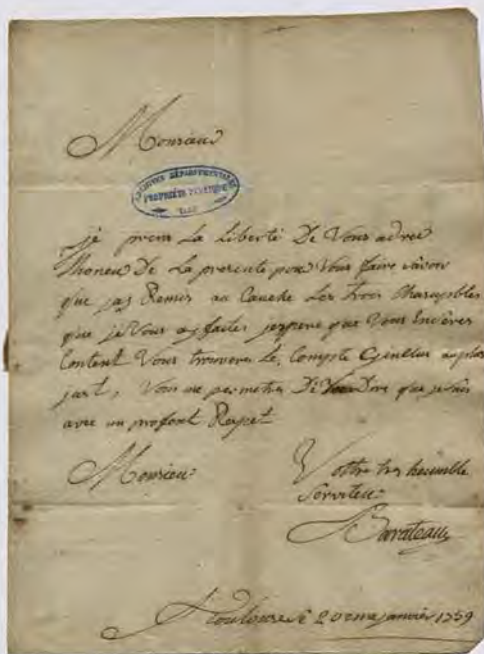 Monsieur
ARCHIVES DÉPARTEMENTALES
PROPRIÉTÉ PUBLIQUE
je prens La Liberté De Vous adres
lhoneur De La presente pour Vous faire savoir
que jay Remis au Coche Les trois Chasuples
que je Vous ay faites jespere que Vous En serés
Content Vous trouveres Le Compte
part, Vous me permetres De Vous Dire que je suis
avec un profont Respet
Monsieur
Vottre tres heumble
serviteur
Barateau
Toulouse Le 20eme janvier 1759